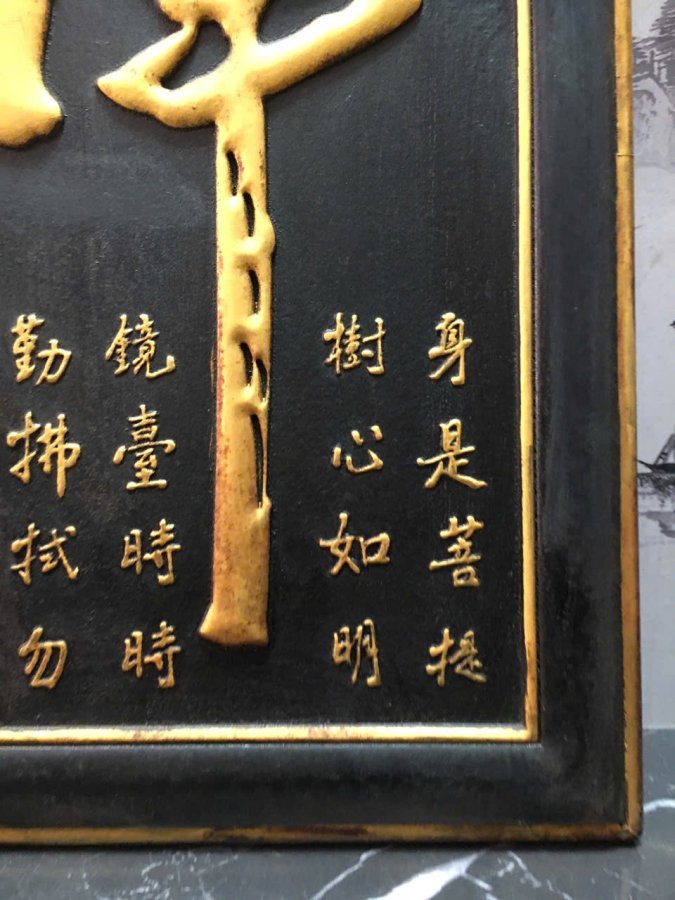 身是菩提
樹心如明
鏡臺時時
勤拂拭勿